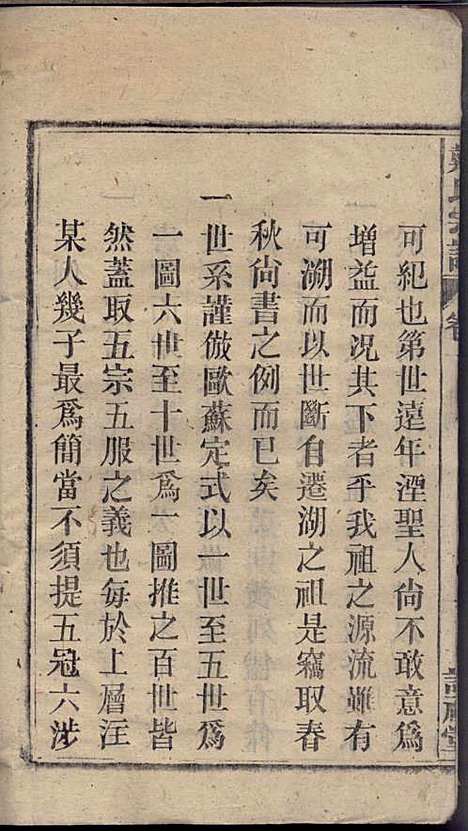 氏宗譜
卷
可紀也第世遠年湮聖人尚不敢意爲
增益而况其下者乎我祖之源流難有
可溯而以世斷自遷湖之祖是竊取春
秋尚書之例而已矣
一世系謹倣歐蘇定式以一世至五世爲
一圖六世至十世爲一圖推之百世皆
然蓋取五宗五服之義也每於上層注
某人幾子最爲簡當不須提五冠六涉